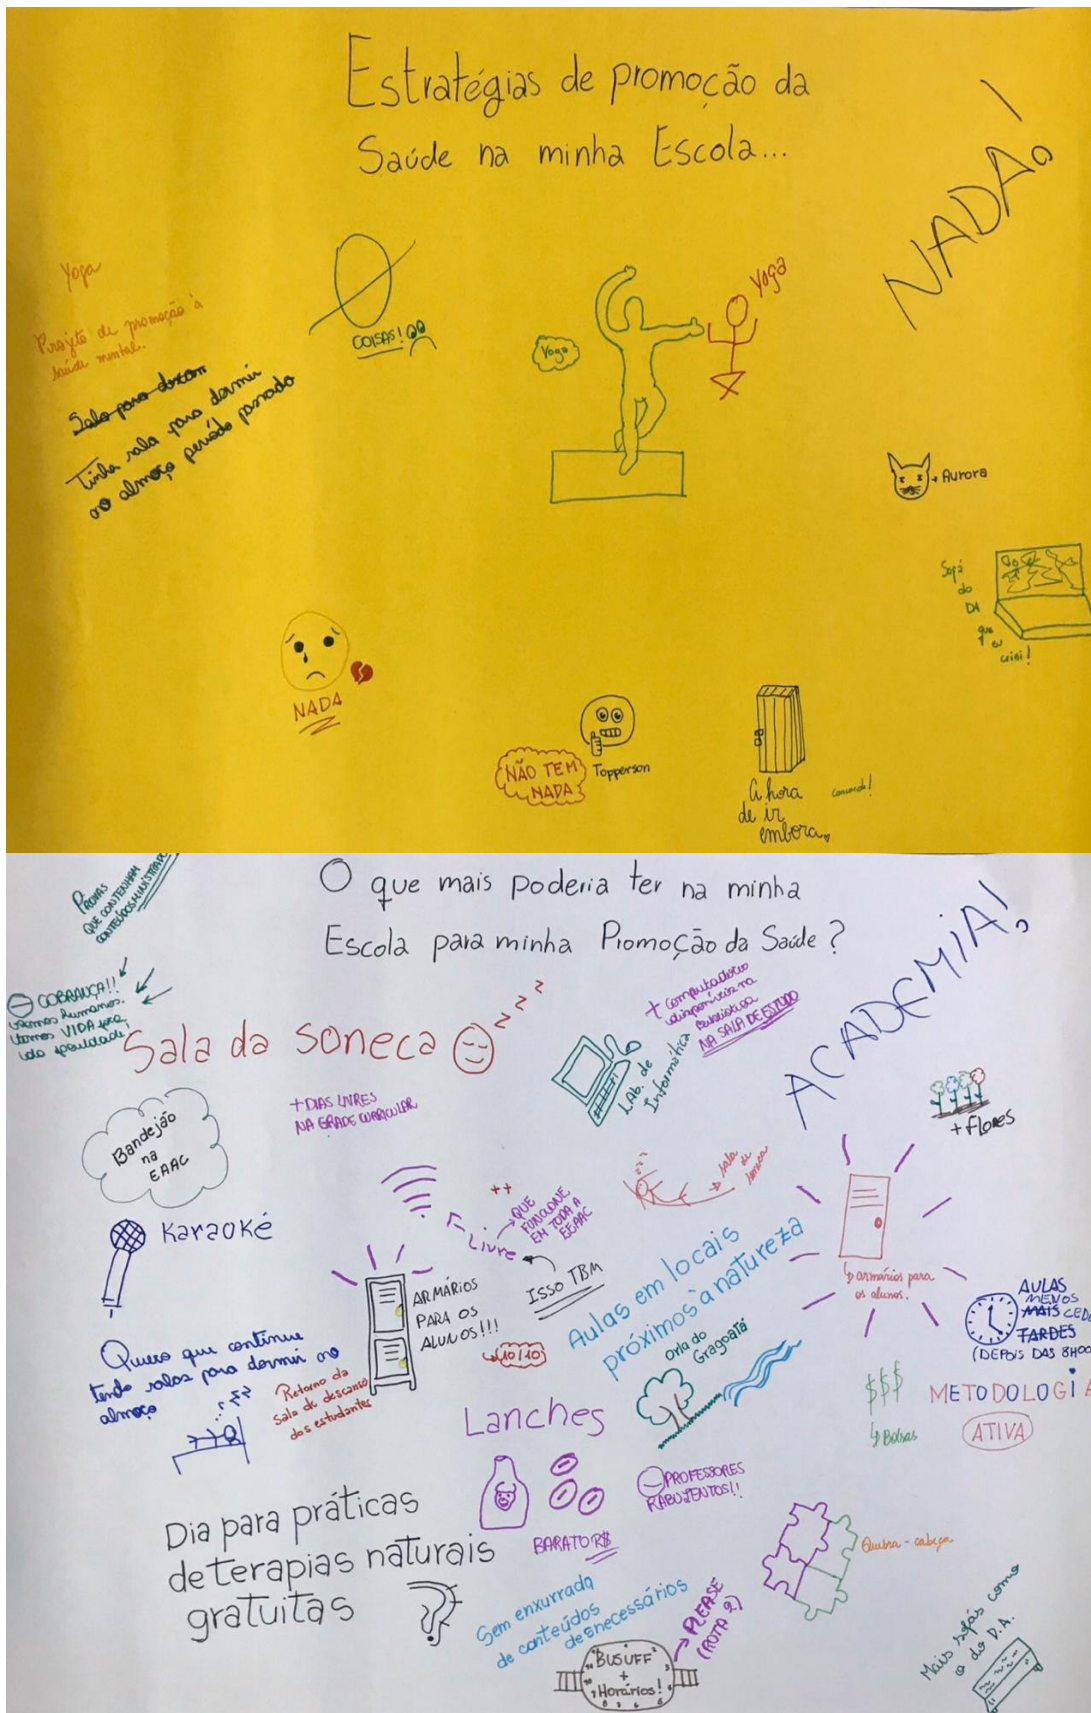 Estratégias de promoção da
Saúde na minha Escola...
NADA!
Yoga
Projeto de promoção à
saúde mental.
Sala para
Tinha sala para dormir
no almoço período passado
COISAS!
Yoga
Yoga
Aurora
Sofá
do
DA
que
eu
NADA
NÃO TEM
NADA
Topperson
A hora
de ir
embora
O que mais poderia ter na minha
Escola para minha Promoção da Saúde?
PROVAS
QUE CONTENHAM
CONTEÚDOS MINISTRADOS
COBRANÇA!!
somos humanos.
temos VIDA fora
da faculdade!
Sala da soneca
z z z z
+ computadores
disponíveis na
biblioteca
NA SALA DE ESTUDO
LAb. de
Informática
ACADEMiA!
+ flores
+ DIAS LIVRES
NA GRADE CURRICULAR
Bandejão
na
EAAC
Karaokê
++
Livre
QUE
FUNCIONE
EM TODA A
EEAAC
ISSO TBM
sala
de
soneca
ARMÁRIOS
PARA OS
ALUNOS!!!
10/10
Aulas em locais
próximos à natureza
Orla do
Gragoatá
armários para
os alunos.
AULAS
MENOS
MAIS CEDO
TARDES
(DEPOIS DAS 8H00
Quero que continue
tendo salas para dormir no
almoço
Retorno da
sala de descanso
dos estudantes
Lanches
BARATO R$
PROFESSORES
RABUJENTOS!!
$$$
Bolsas
METODOLOGiA
ATIVA
Dia para práticas
de terapias naturais
gratuitas
Quebra-cabeça
Sem enxurrada
de conteúdos
desnecessários
PLEASE
(ROTA 2)
BUSUFF
+
Horários!
Mais sofás como
o do D.A.